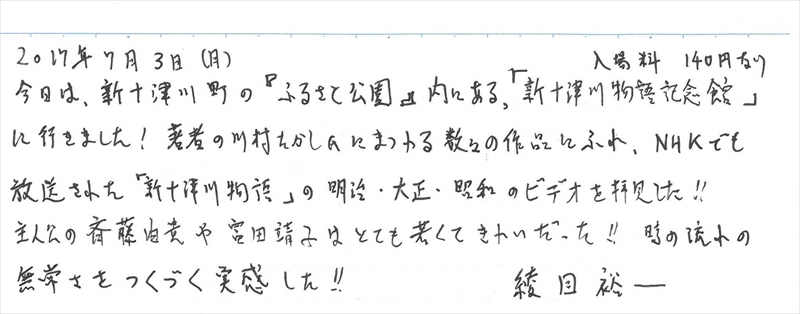 2017年7月3日(月) 入場料 140円なり
今日は、新十津川町の『ふるさと公園』内にある、「新十津川物語記念館」
に行きました! 著者の川村たかし氏にまつわる数々の作品にふれ、NHKでも
放送された「新十津川物語」の明治・大正・昭和のビデオを拝見した!!
主人公の斉藤由貴や宮田靖子はとても若くてきれいだった!! 時の流れの
無常さをつくづく実感した!! 綾目裕一